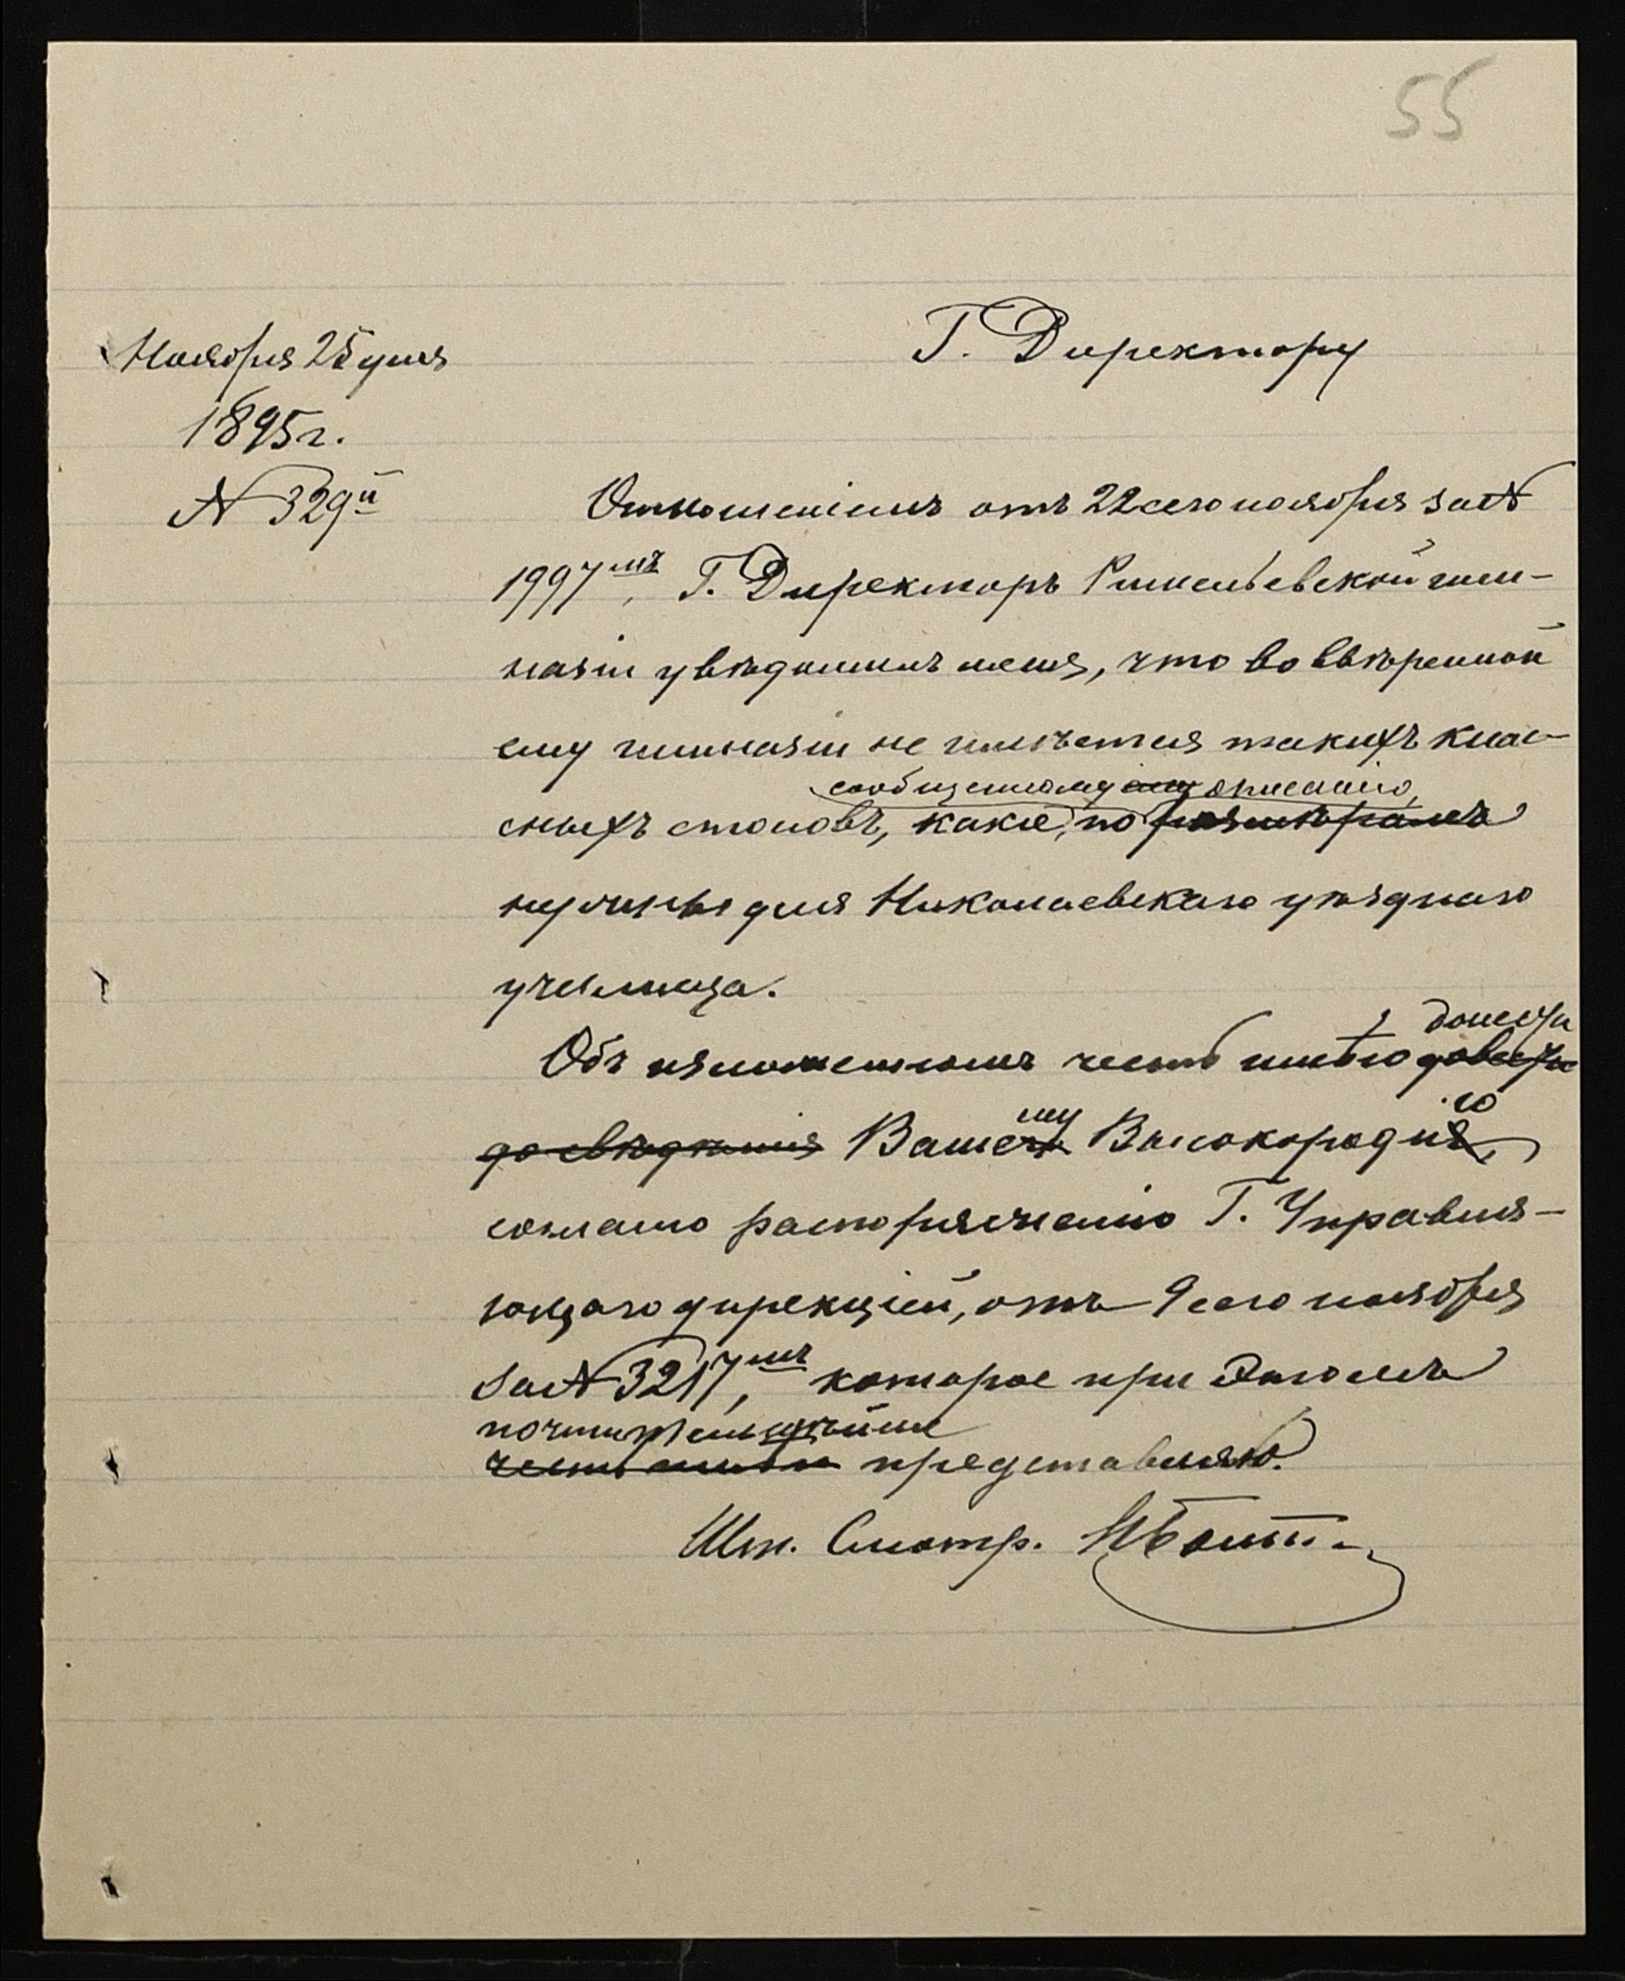 55
Ноября 25 дня
1895 г.
№ 329й
Г. Директору
Отношеніемъ отъ 22 сего ноября за №
1997мъ, Г. Директоръ Ришельевской гим-
назіи увѣдомилъ меня, что во ввѣренной
ему гимназіи не имѣется такихъ клас-
сообщенному ему описанію,
сныхъ столовъ, какіе, по размѣрамъ
нужны для Николаевскаго уѣзднаго
училища.
донести
Объ изложенномъ честь имѣю довести
му ію
до свѣдѣнія Вашего Высокородія,
согласно распоряженію Г. Управля-
ющаго дирекціей, отъ 9 сего ноября
за № 3217мъ, которое при этомъ
почтительнѣйше
честь имѣю представляю.
Шт. Смотр.